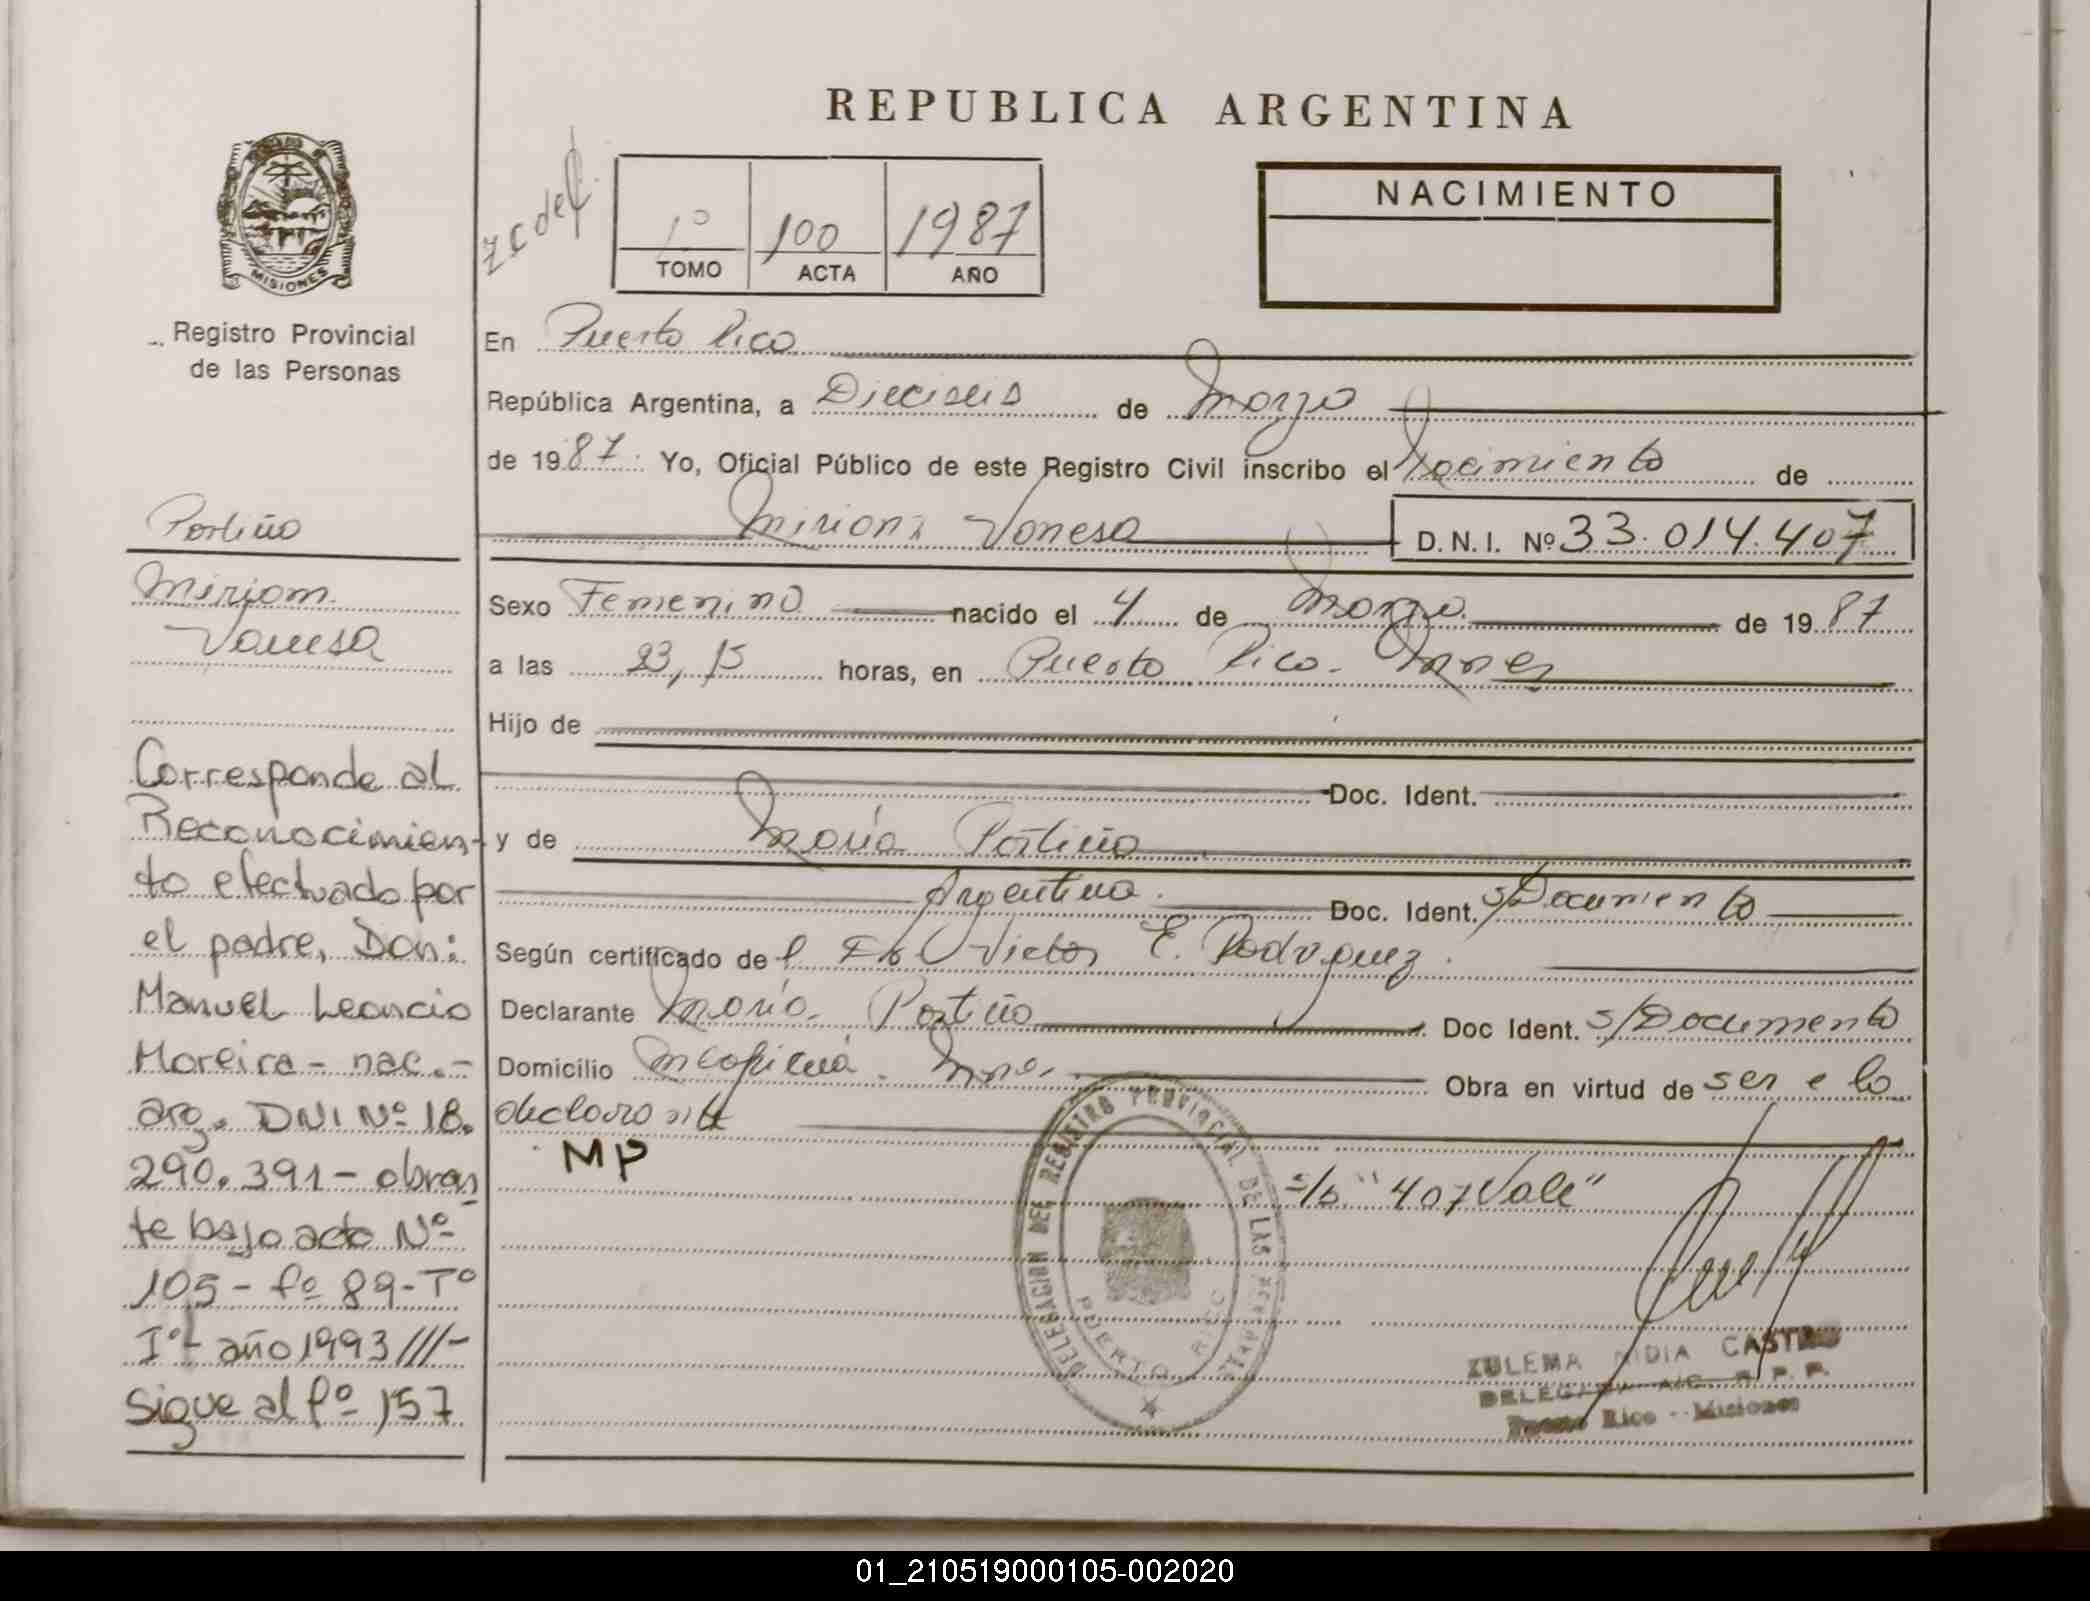 REPUBLICA ARGENTINA
MISIONES
Registro Provincial
de las Personas
1º 100 1987
TOMO ACTA AÑO
NACIMIENTO
En Puerto Rico
República Argentina, a Dieciseis de Marzo
de 1987. Yo, Oficial Público de este Registro Civil inscribo el Nacimiento de
Miriam Vanesa D.N.I. Nº 33.014.407
Sexo Femenino nacido el 4 de Marzo de 1987
a las 23,15 horas, en Puerto Rico. Mnes
Hijo de
Doc. Ident.
y de María Portiño
Argentina. Doc. Ident. s/Documento
Según certificado del Dr Victor E. Rodriguez.
Declarante María Portiño Doc Ident. s/Documento
Domicilio Mnes. Obra en virtud de ser e lo
declarante
MP
s/b "407 Vale"
DELEGACION DEL REGISTRO PROVINCIAL DE LAS PERSONAS
PUERTO RICO
ZULEMA NIDIA CASTRO
DELEGADA A/C R. P. P.
Puerto Rico - Misiones
Portiño
Miriam
Vanesa
Corresponde al
Reconocimien-
to efectuado por
el padre, Don:
Manuel Leoncio
Moreira - nac.-
arg. DNI Nº 18.
290.391 - obran
te bajo acta Nº
105 - fº 89 - Tº
Iº - año 1993 ///-
Sigue al fº 157
01_210519000105-002020